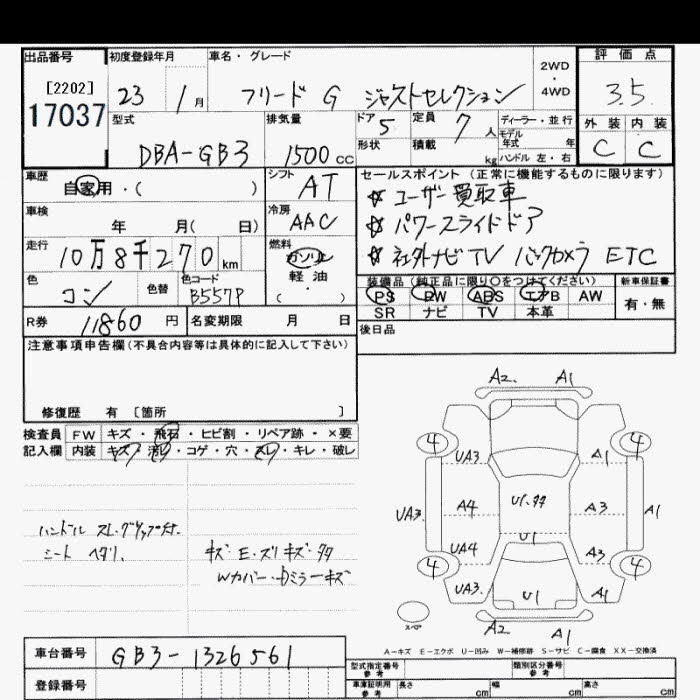 出品番号 初度登録年月 車名・グレード 2WD ・ 4WD 評価点
[2202] 23 1月 フリード G ジャストセレクション 3.5
17037 型式 排気量 ドア 5 定員 7人 ディーラー・並行 外装 内装
DBA-GB3 1500cc 形状 積載 kg モデル年式 年 C C
ハンドル 左・右
車歴 自家用・( ) シフト AT セールスポイント (正常に機能するものに限ります)
車検 年 月( 日) 冷房 AAC ☆ ユーザー買取車
☆ パワースライドドア
走行 10万8千270km 燃料 ガソリン 軽油 ・ ( ) ☆ 社外ナビ TV バックカメラ ETC
色 コン 色替 色コード B557P 装備品 (純正品に限り○をつけてください) 新車保証書
PS PW ABS エアB AW 有・無
R券 11860円 名変期限 月 日 SR ナビ TV 本革
注意事項申告欄(不具合内容等は具体的に記入して下さい) 後日品
修復歴 有 [箇所 ]
検査員 FW キズ・飛石・ヒビ割・リペア跡・×要
記入欄 内装 キズ・汚レ・コゲ・穴・スレ・キレ・破レ
A2. A1
4 4
UA3 A1
UA3. A4 U1.タタ A3 A1
U1
UA4 A3
4 4
UA3. U1 A1
A2 A1
スペア
ハンドル スレ.グリップ付.
シート ヘタリ. キズ・E・ズリキズ・タタ
Wカバー・Dミラーキズ
A-キズ E-エクボ U-凹み W-補修跡 S-サビ C-腐食 XX-交換済
車台番号 GB3-1326561
登録番号
型式指定番号 参考 類別区分番号 参考
車庫証明用 参考 長さ cm 幅 cm 高さ cm